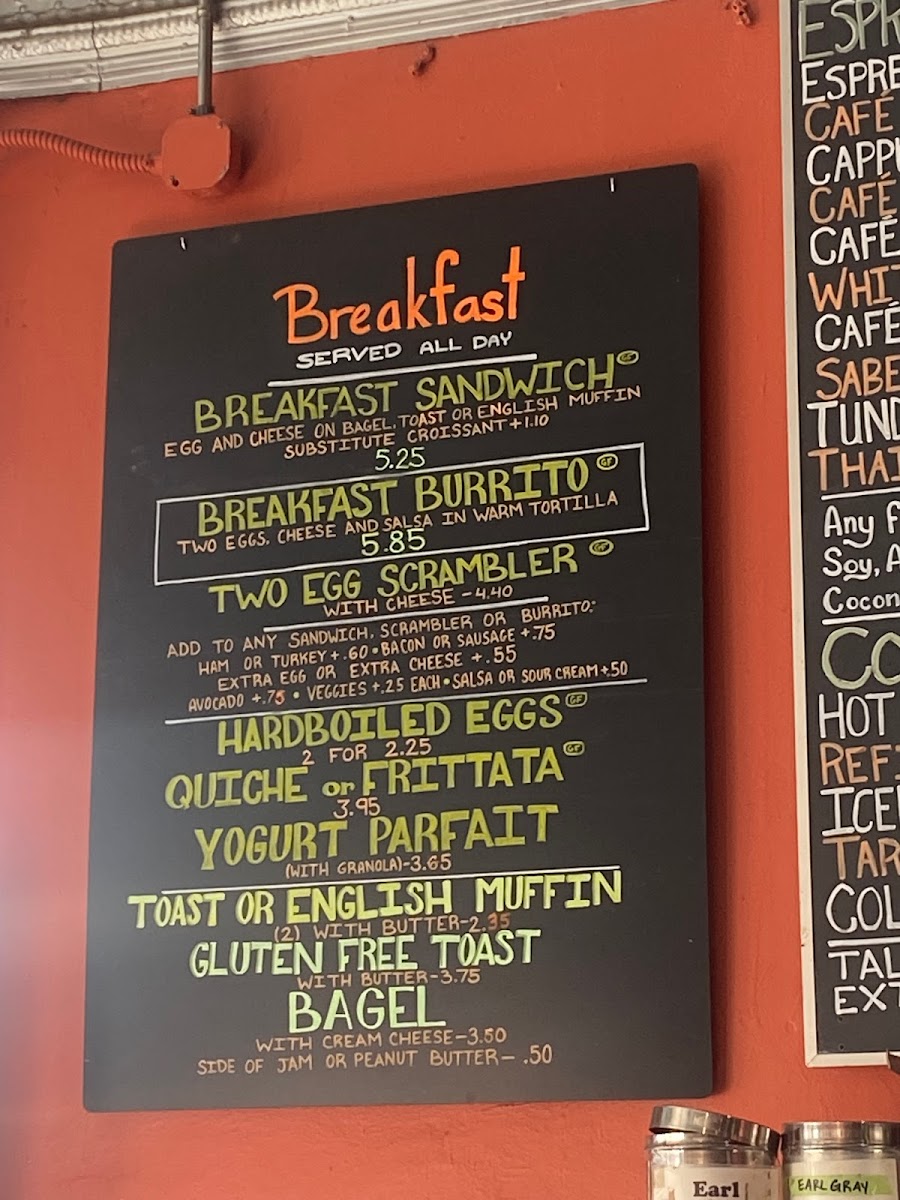 Breakfast
SERVED ALL DAY
BREAKFAST SANDWICH GF
EGG AND CHEESE ON BAGEL, TOAST OR ENGLISH MUFFIN
SUBSTITUTE CROISSANT +1.10
5.25
BREAKFAST BURRITO GF
TWO EGGS, CHEESE AND SALSA IN WARM TORTILLA
5.85
TWO EGG SCRAMBLER GF
WITH CHEESE - 4.40
ADD TO ANY SANDWICH, SCRAMBLER OR BURRITO:
HAM OR TURKEY +.60 • BACON OR SAUSAGE +.75
EXTRA EGG OR EXTRA CHEESE +.55
AVOCADO +.75 • VEGGIES +.25 EACH • SALSA OR SOUR CREAM +.50
HARDBOILED EGGS GF
2 FOR 2.25
QUICHE or FRITTATA GF
3.95
YOGURT PARFAIT
(WITH GRANOLA) - 3.65
TOAST OR ENGLISH MUFFIN
(2) WITH BUTTER - 2.35
GLUTEN FREE TOAST
WITH BUTTER - 3.75
BAGEL
WITH CREAM CHEESE - 3.50
SIDE OF JAM OR PEANUT BUTTER - .50
ESPR
ESPRE
CAFÉ
CAPPU
CAFÉ
CAFÉ
WHIT
CAFÉ
SABE
TUND
THAI
Any F
Soy, A
Cocon
CO
HOT
REFI
ICE
TAR
COL
TAL
EXT
Earl
EARL GRAY